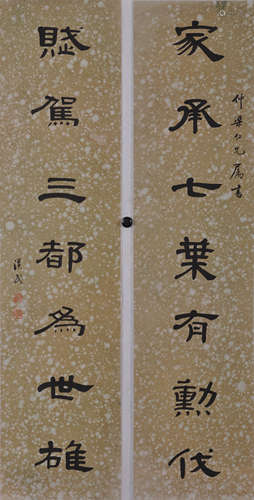 家承七葉有勳伐
仲翠仁兄屬書
賦駕三都為世雄
漢民